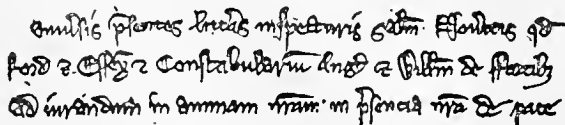 omnib3 p̃sentes litt̃as inspecturis salt̃m. Nov̾itis qd
ford ⁊ Essex̃ ⁊ Constabulariũ Angł ⁊ Willm̃ de Fortib3
ad iurandum in animam nr̃am in p̃sencia nr̃a de pace